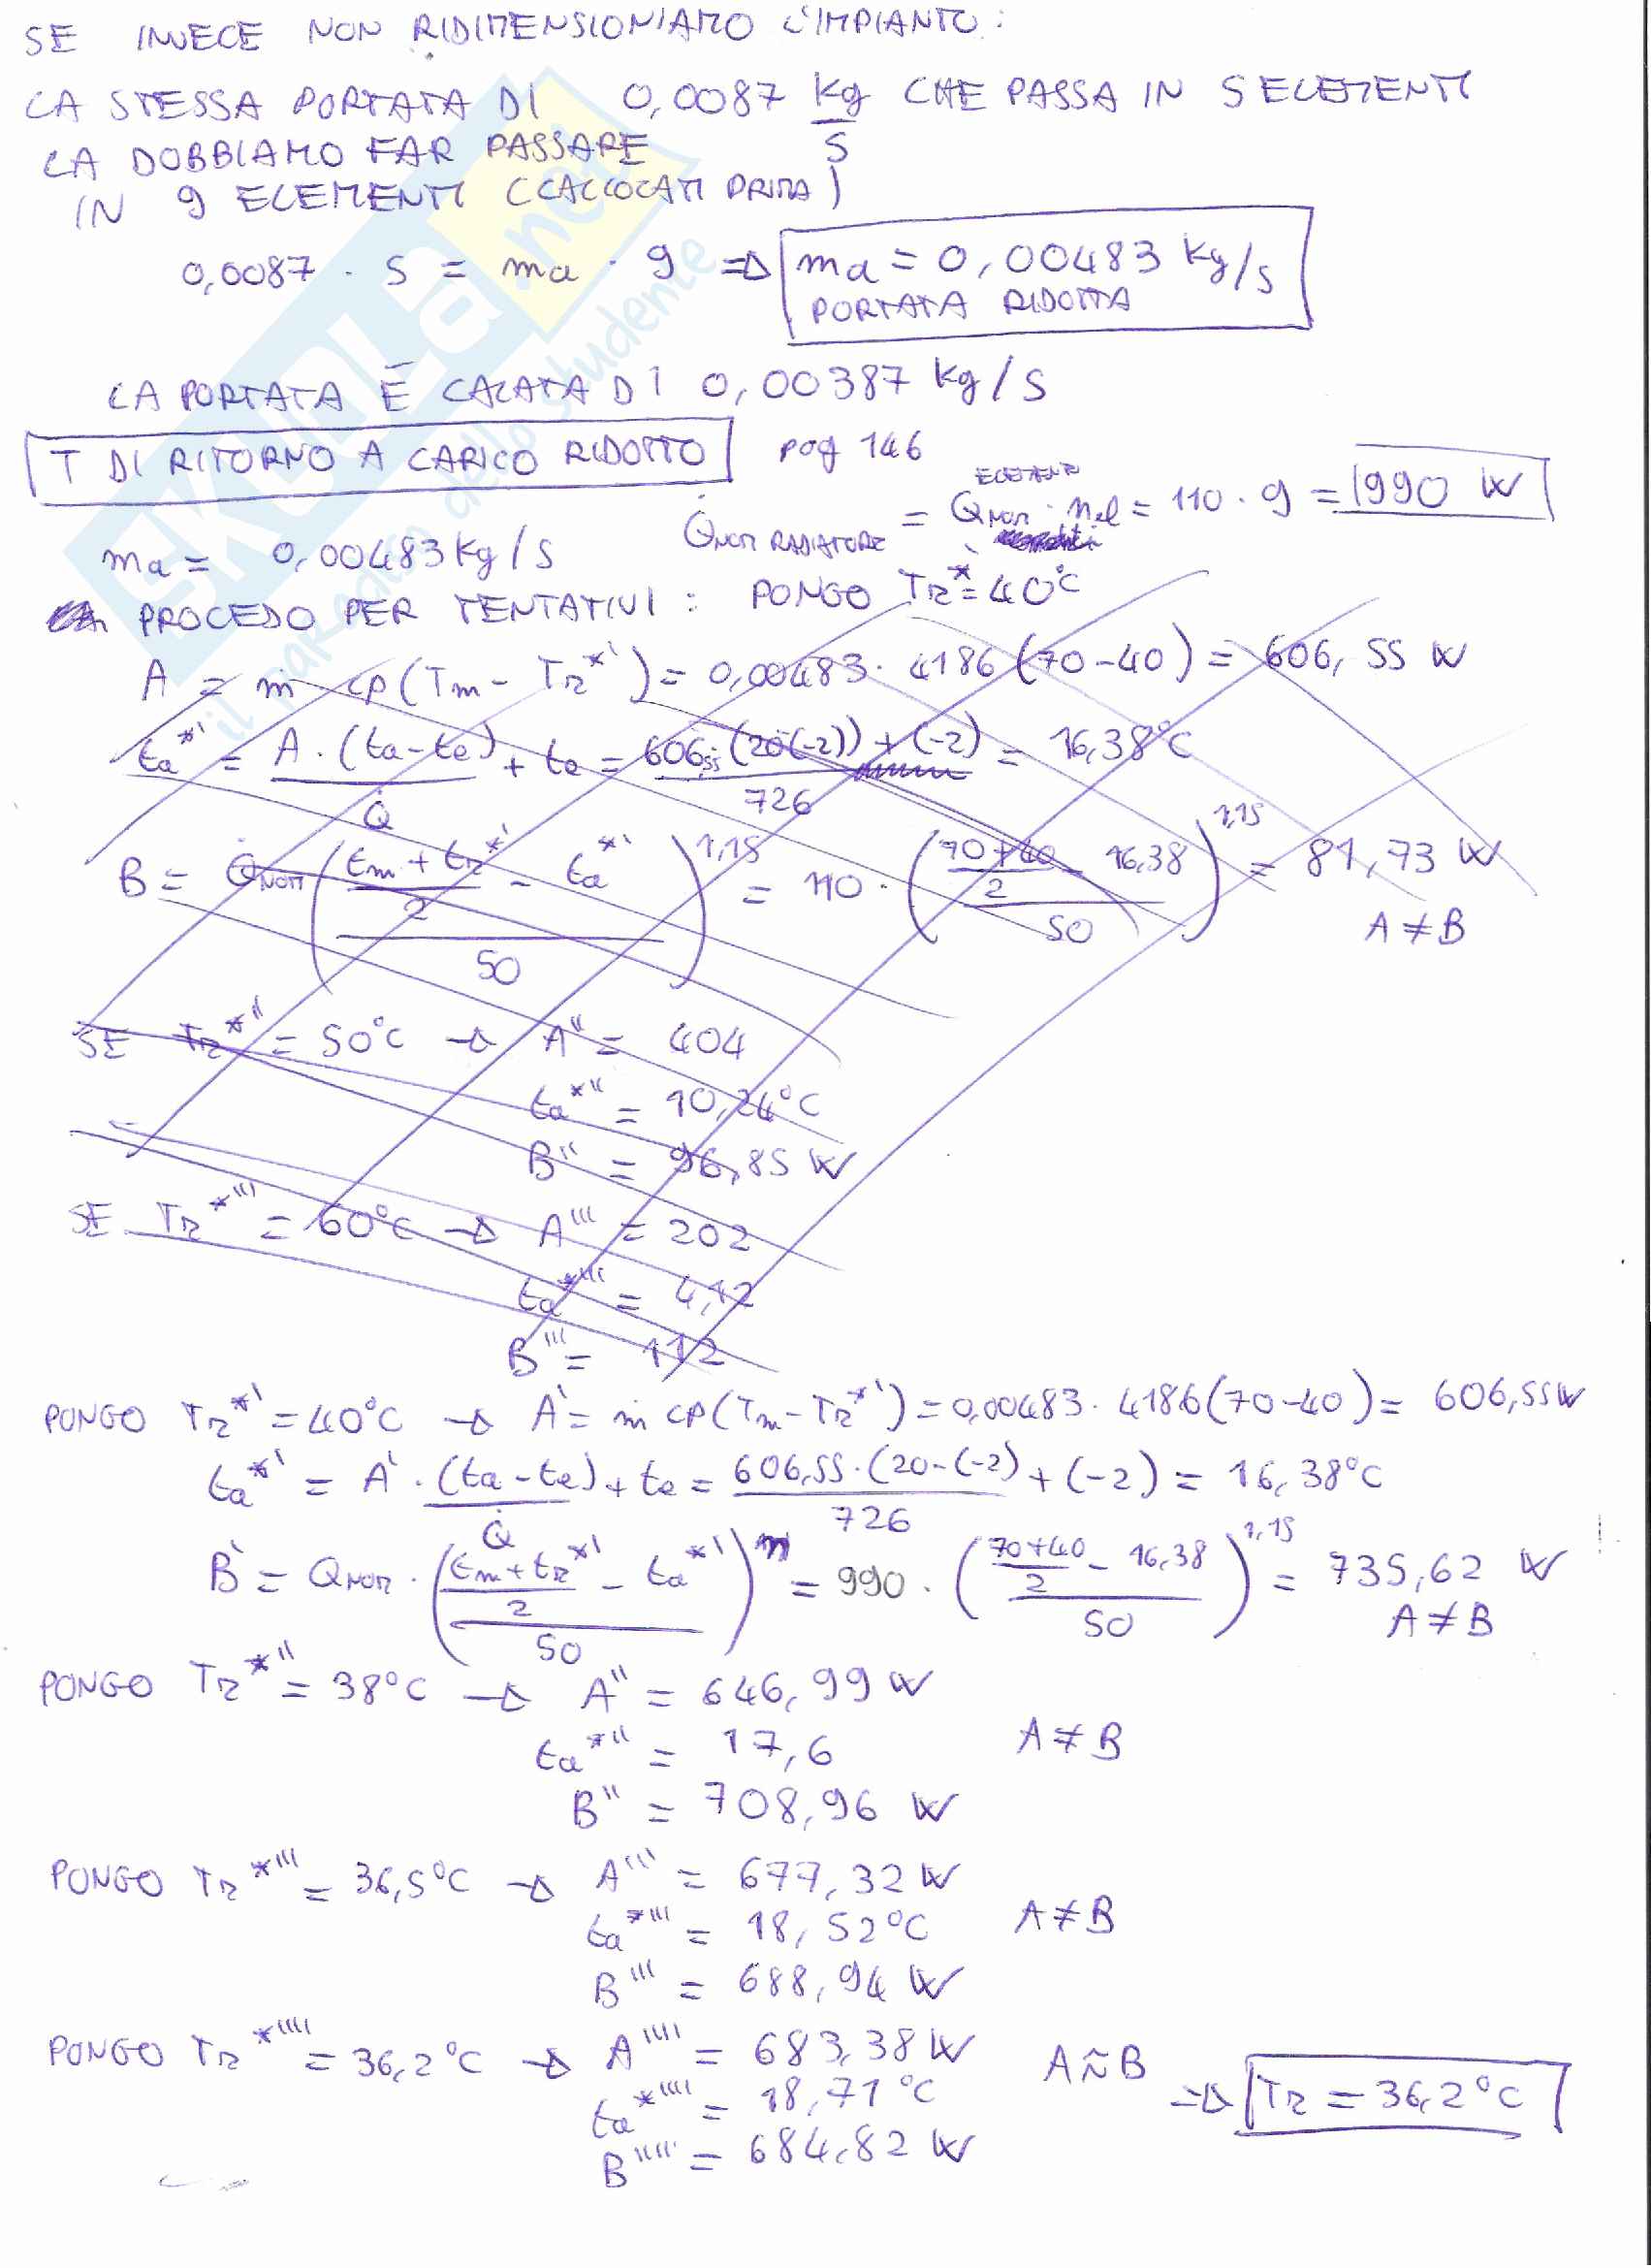 SE INVECE NON RIDIMENSIONIAMO L'IMPIANTO:
LA STESSA PORTATA DI 0,0087 kg/s CHE PASSA IN 5 ELEMENTI
LA DOBBIAMO FAR PASSARE
IN 9 ELEMENTI (CALCOLATI PRIMA)
0,0087 · 5 = ma · 9 => ma = 0,00483 kg/s
PORTATA RIDOTTA
LA PORTATA È CALATA DI 0,00387 kg/s
T DI RITORNO A CARICO RIDOTTO pag 146
Q̇NOM RADIATORE = Q̇NOM ELEMENTO · nel = 110 · 9 = 990 W
ma = 0,00483 kg/s
PROCEDO PER TENTATIVI: PONGO TR* = 40°C
A = ṁ cp (Tm - TR*') = 0,00483 · 4186 (70-40) = 606,55 W
ta*' = A · (ta-te) / Q̇ + te = 606,55 (20(-2)) / 726 + (-2) = 16,38°C
B = Q̇NOM (((tm + tR*')/2 - ta*') / 50)^1,15 = 110 · (((70+40)/2 - 16,38) / 50)^1,15 = 81,73 W
A ≠ B
SE TR*'' = 50°C → A'' = 404
ta*'' = 10,24°C
B'' = 96,85 W
SE TR*''' = 60°C → A''' = 202
ta*''' = 4,12
B''' = 112
PONGO TR*' = 40°C → A' = ṁ cp (Tm - TR*') = 0,00483 · 4186 (70-40) = 606,55 W
ta*' = A' · (ta-te) / Q̇ + te = 606,55 · (20-(-2) / 726 + (-2) = 16,38°C
B' = QNOM · (((tm + tR*')/2 - ta*') / 50)^n = 990 · (((70+40)/2 - 16,38) / 50)^1,15 = 735,62 W
A ≠ B
PONGO TR*'' = 38°C → A'' = 646,99 W
ta*'' = 17,6 A ≠ B
B'' = 708,96 W
PONGO TR*''' = 36,5°C → A''' = 677,32 W
ta*''' = 18,52°C A ≠ B
B''' = 688,94 W
PONGO TR*'''' = 36,2°C → A'''' = 683,38 W A ≈ B => TR = 36,2°C
ta*'''' = 18,71°C
B'''' = 684,82 W
SKUOLA.net
il paradiso dello studente